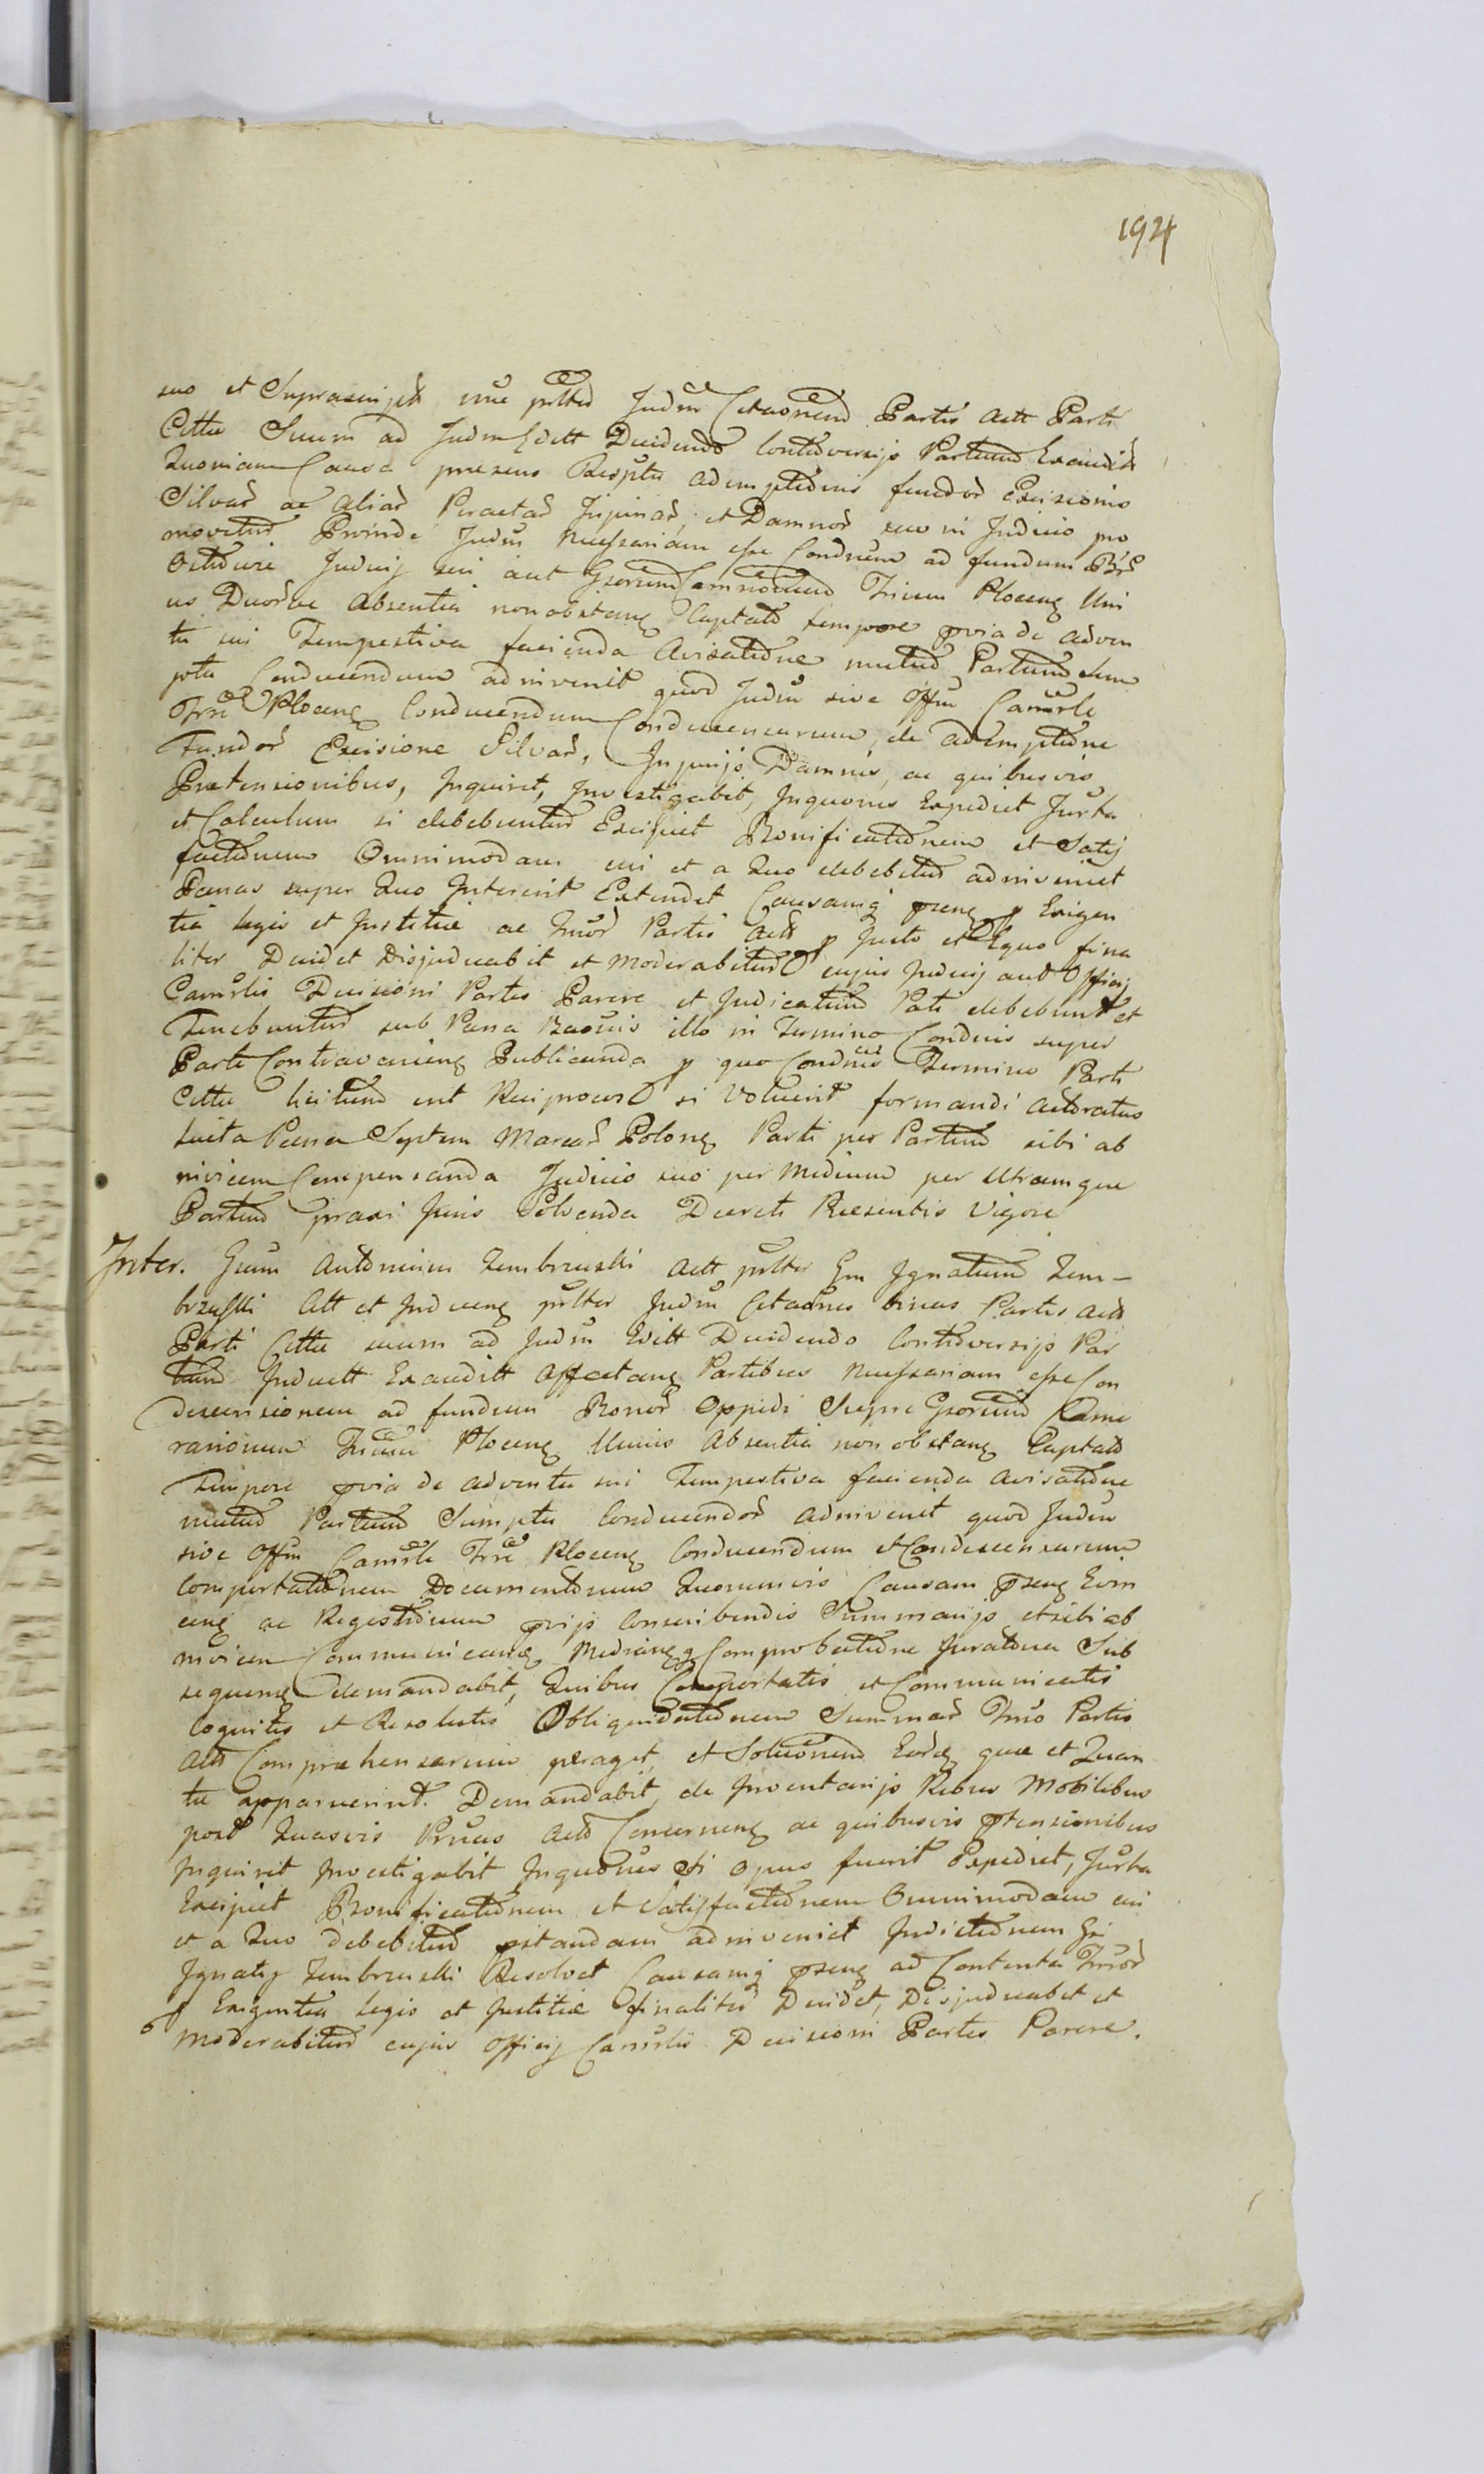 194
suo et Suprascripta sine pnttr Judm Citaonem Partis Actt Parti
Citta Suum ad Judm Editt Decidendo Controversijs Partium Exauditis
Quoniam Causa praesens Respectu ademptionis fundor Excisionis
Silvar ac aliar Peractar Injuriar, et Damnor suo in Judicio pro
movetur Proinde Judm necessariam esse Condnem ad fundum
Judicij sui aut Gsorum Camrioum Trium Plocens Uni
us Duorve absentia non obstante Captato tempore pvia de adven
tu sui Tempestiva facienda Avisatione mutuo Partium Sum
ptu Conducendum adinvenit quod Judm sive Offm Camrle
Trre Plocens Conducendum Condescensurum, de ademptione
Fundor Excisione Silvar, Injurijs Damnis, ac quibusvis
Praetensionibus, Inquiret, Investigabit, Inquones Expediet Jurta
et Calculum si debebuntur Excipiet Bonificationem et Satis
factionem Omnimodam cui et a Quo debebitur adinveniet
Paenas super Quo Intererit Extendet Causamq psens p Exigen
tia legis et Justitiae ac Jurior Partis Actt p Justo et Equo fina
liter Decidet Disjudicabit et moderabitur cujus Judicij aut Officij
Camrlis Decisioni Partes Parere et Judicatum Pati debebunt et
Tenebuntur sub Paena Baonis illo in Termino Condnis super
Parte Contraveniens Publicanda p quo Condnis Termino Parti
Citta licitum erit Reciprocor si Voluerit formandi actoratus
luita Paena Septem Marcar Polons Parti per Partium sibi ab
invicem Compensanda Judicio suo per medium per Utramque
Partium praxi Juris Solvenda Decreti Praesentis Vigore
Inter. Gsum Antonium Zembrzuski Actt pntter Gm Ignatium Zem-
brzuski Citt et Inducens pntter Judm Citaones binas Partis Actt
Parti Citta suum ad Judm Editt Decidendo Controversijs Par
tium Inductt Exauditt affectans Partibus necessariam esse Con
descensionem ad fundum Bonor Oppidi Siepre Gsorum Came
rariorum Trium Plocens Unius Absentia non obstante Captato
Tempore pvia de adventu sui Tempestiva facienda avisatione
mutuo Partium Sumptu Conducendor adinvenit quod Judm
sive Offm Camrle Trre Plocens Conducendum et Condescensurum
Comportationem Documentorum Quorumvis Causam psens Evin
cens ac Regestrorum pvijs Conscribendis Summarijs et sibi ab
invicem Communicans Medians Comprobatione Juratoria Sub
sequens demandabit, Quibus Comportatis et Communicatis
Cognitis et Resolutis Obliquidationem Summar Trio Partis
Actt Comprehensarum peraget, et Solutionem Eard quae et Quan
ta apparuerint. Demandabit, de Inventarijs Rebus Mobilibus
post Quasvis Pnas Actt Concernens ac quibusvis ptensionibus
Inquiret Investigabit Inquones si opus fuerit Expediet, Jurta
Excipiet Bonificationem et Satisfactionem Omnimodam cui
et a Quo debebitur pstandam adinveniet Inductionem Gsi
Ignatij Zembrzuski Resolvet Causamq psens ad Contenta Jurior
p Exigentia legis et Justitiae finaliter Decidet, Disjudicabit et
moderabitur cujus Officij Camrlis Decisioni Partes Parere.